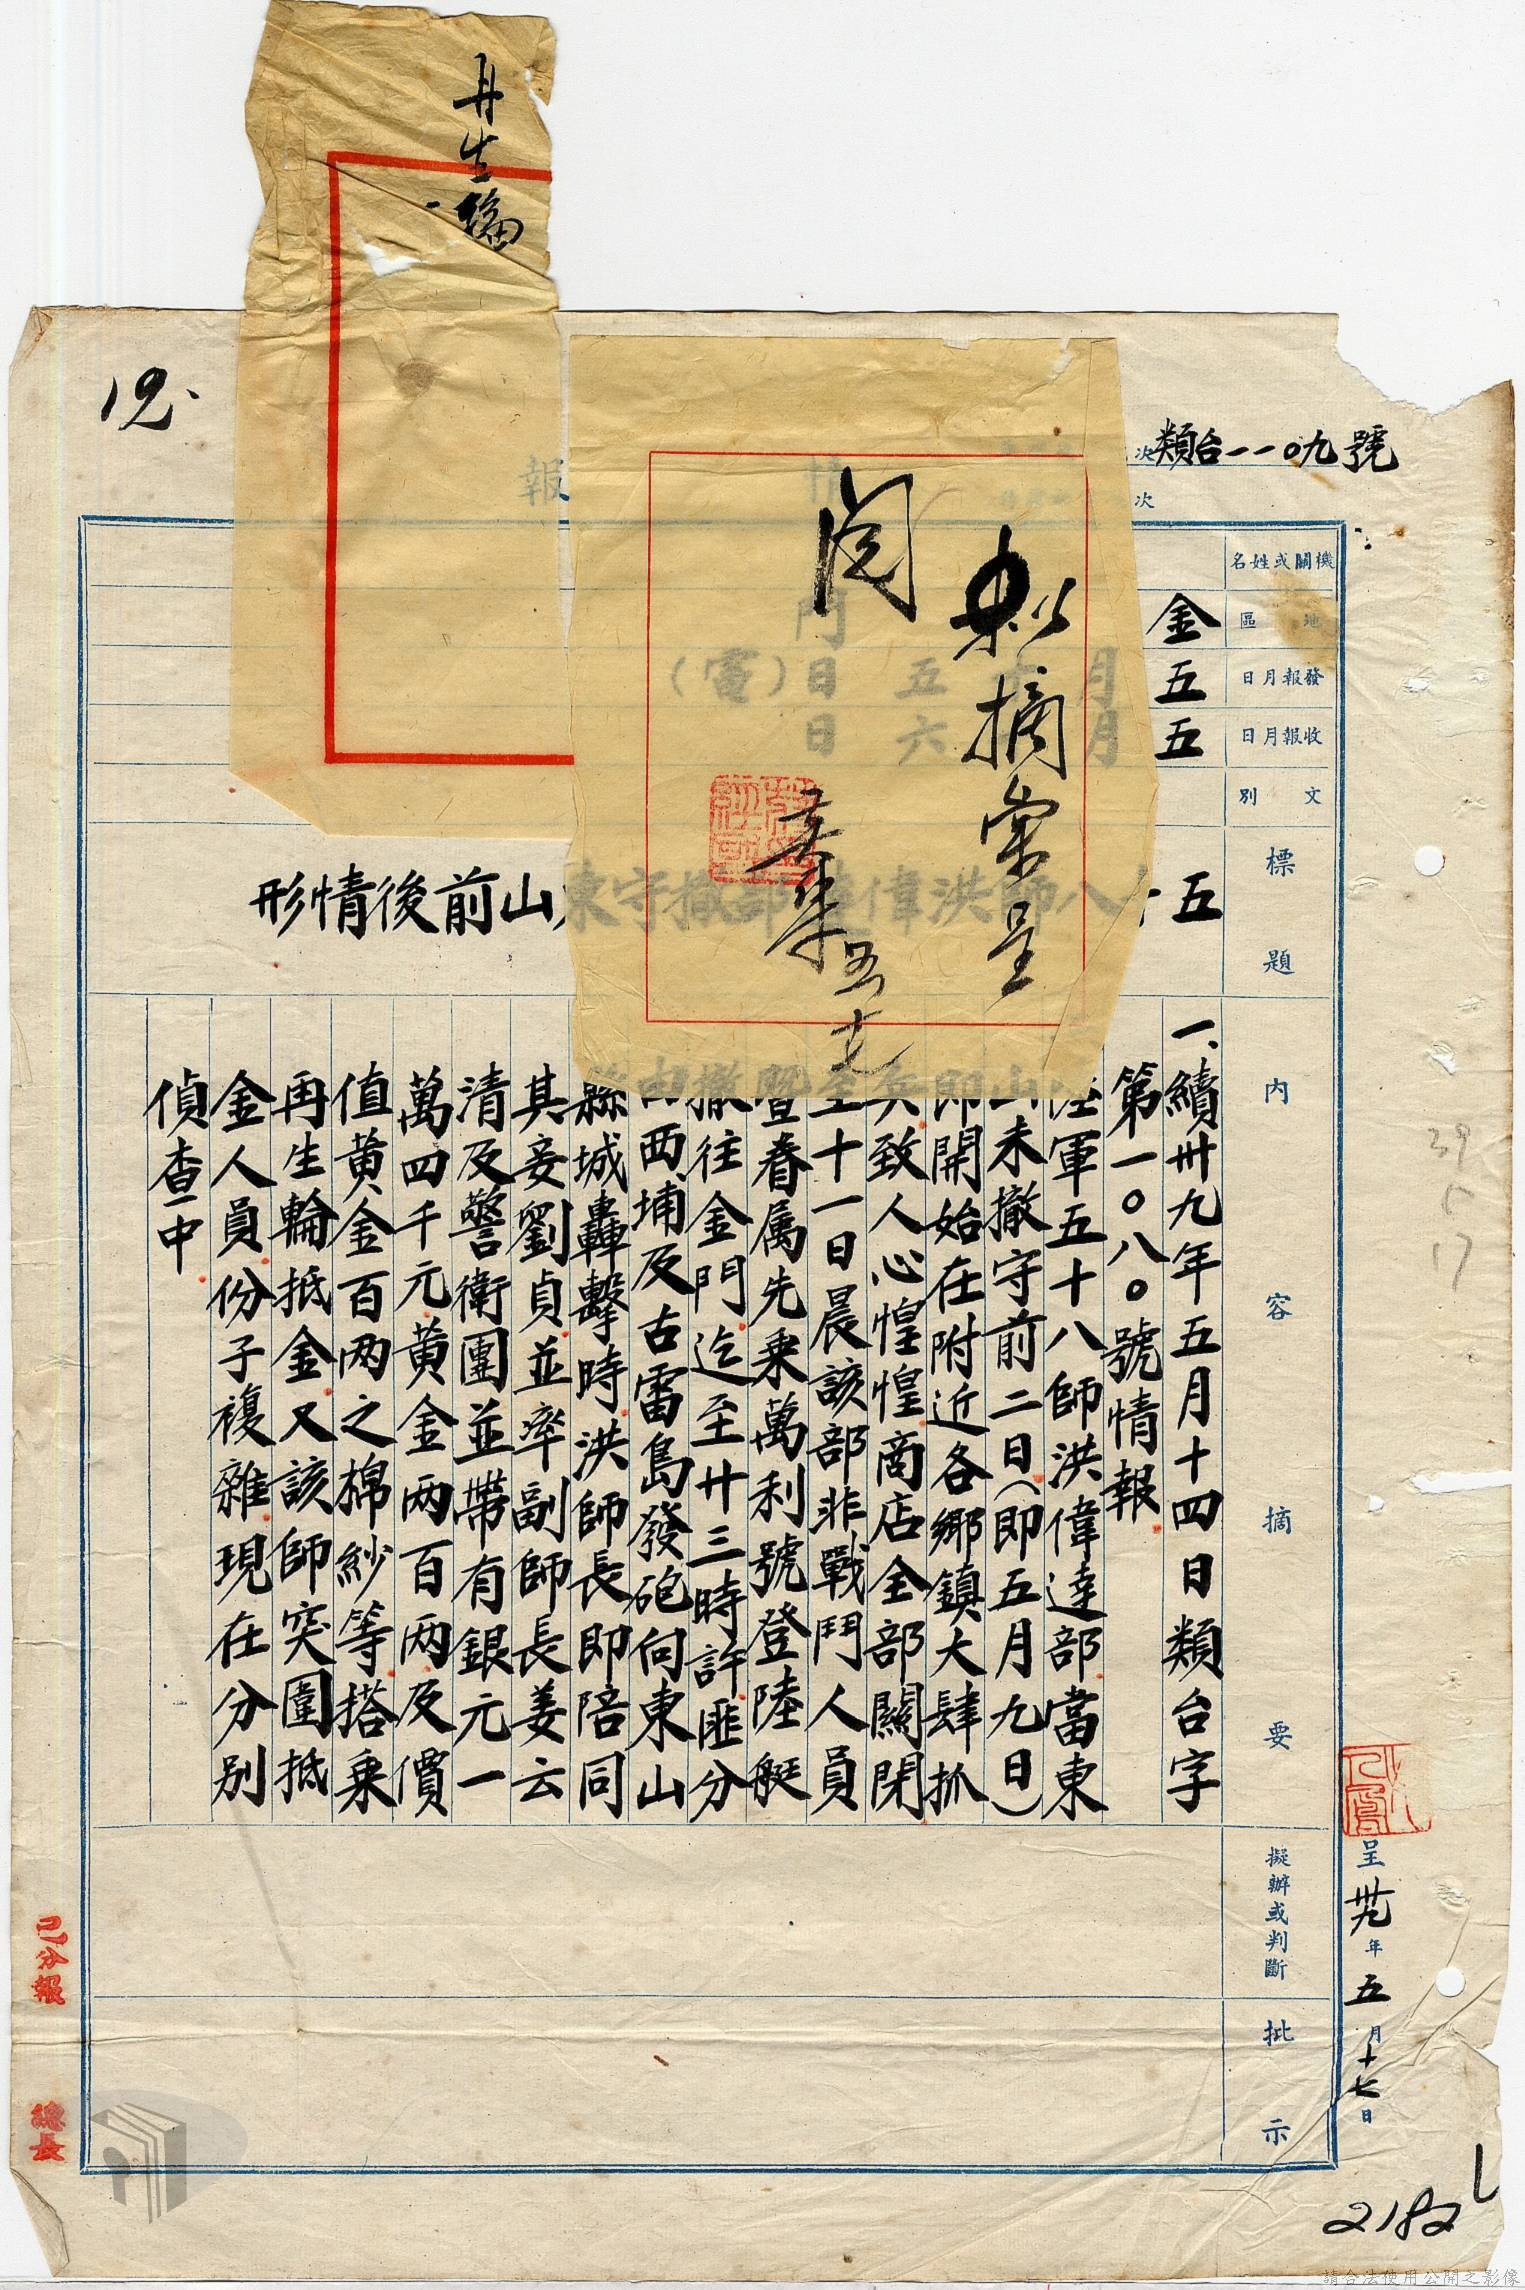 類台一一〇九號
次
次
情報
機關或姓名
地區
金門
發報月日
五月十五日(電)
收報月日
五月十六日
文別
標題
五十八師洪偉達部撤守東山前後情形
內容摘要
一、續卅九年五月十四日類台字
第一〇八〇號情報
陸軍五十八師洪偉達部當東
山未撤守前二日(即五月九日)
即開始在附近各鄉鎮大肆抓
兵致人心惶惶商店全部關閉
至十一日晨該部非戰鬥人員
暨眷屬先乘萬利號登陸艇
撤往金門迄至廿三時許匪分
由西埔及古雷島發砲向東山
縣城轟擊時洪師長即陪同
其妾劉貞並率副師長姜云
清及警衛團並帶有銀元一
萬四千元黄金两百两及價
值黄金百两之棉紗等搭乘
再生輪抵金又該師突圍抵
金人員份子複雜現在分別
偵查中
擬辦或判斷
批示
呈卅九年五月十七日
擬摘彙呈
閱
丹生
已分報
總長
39
5
17
2182
請合法使用公開之影像